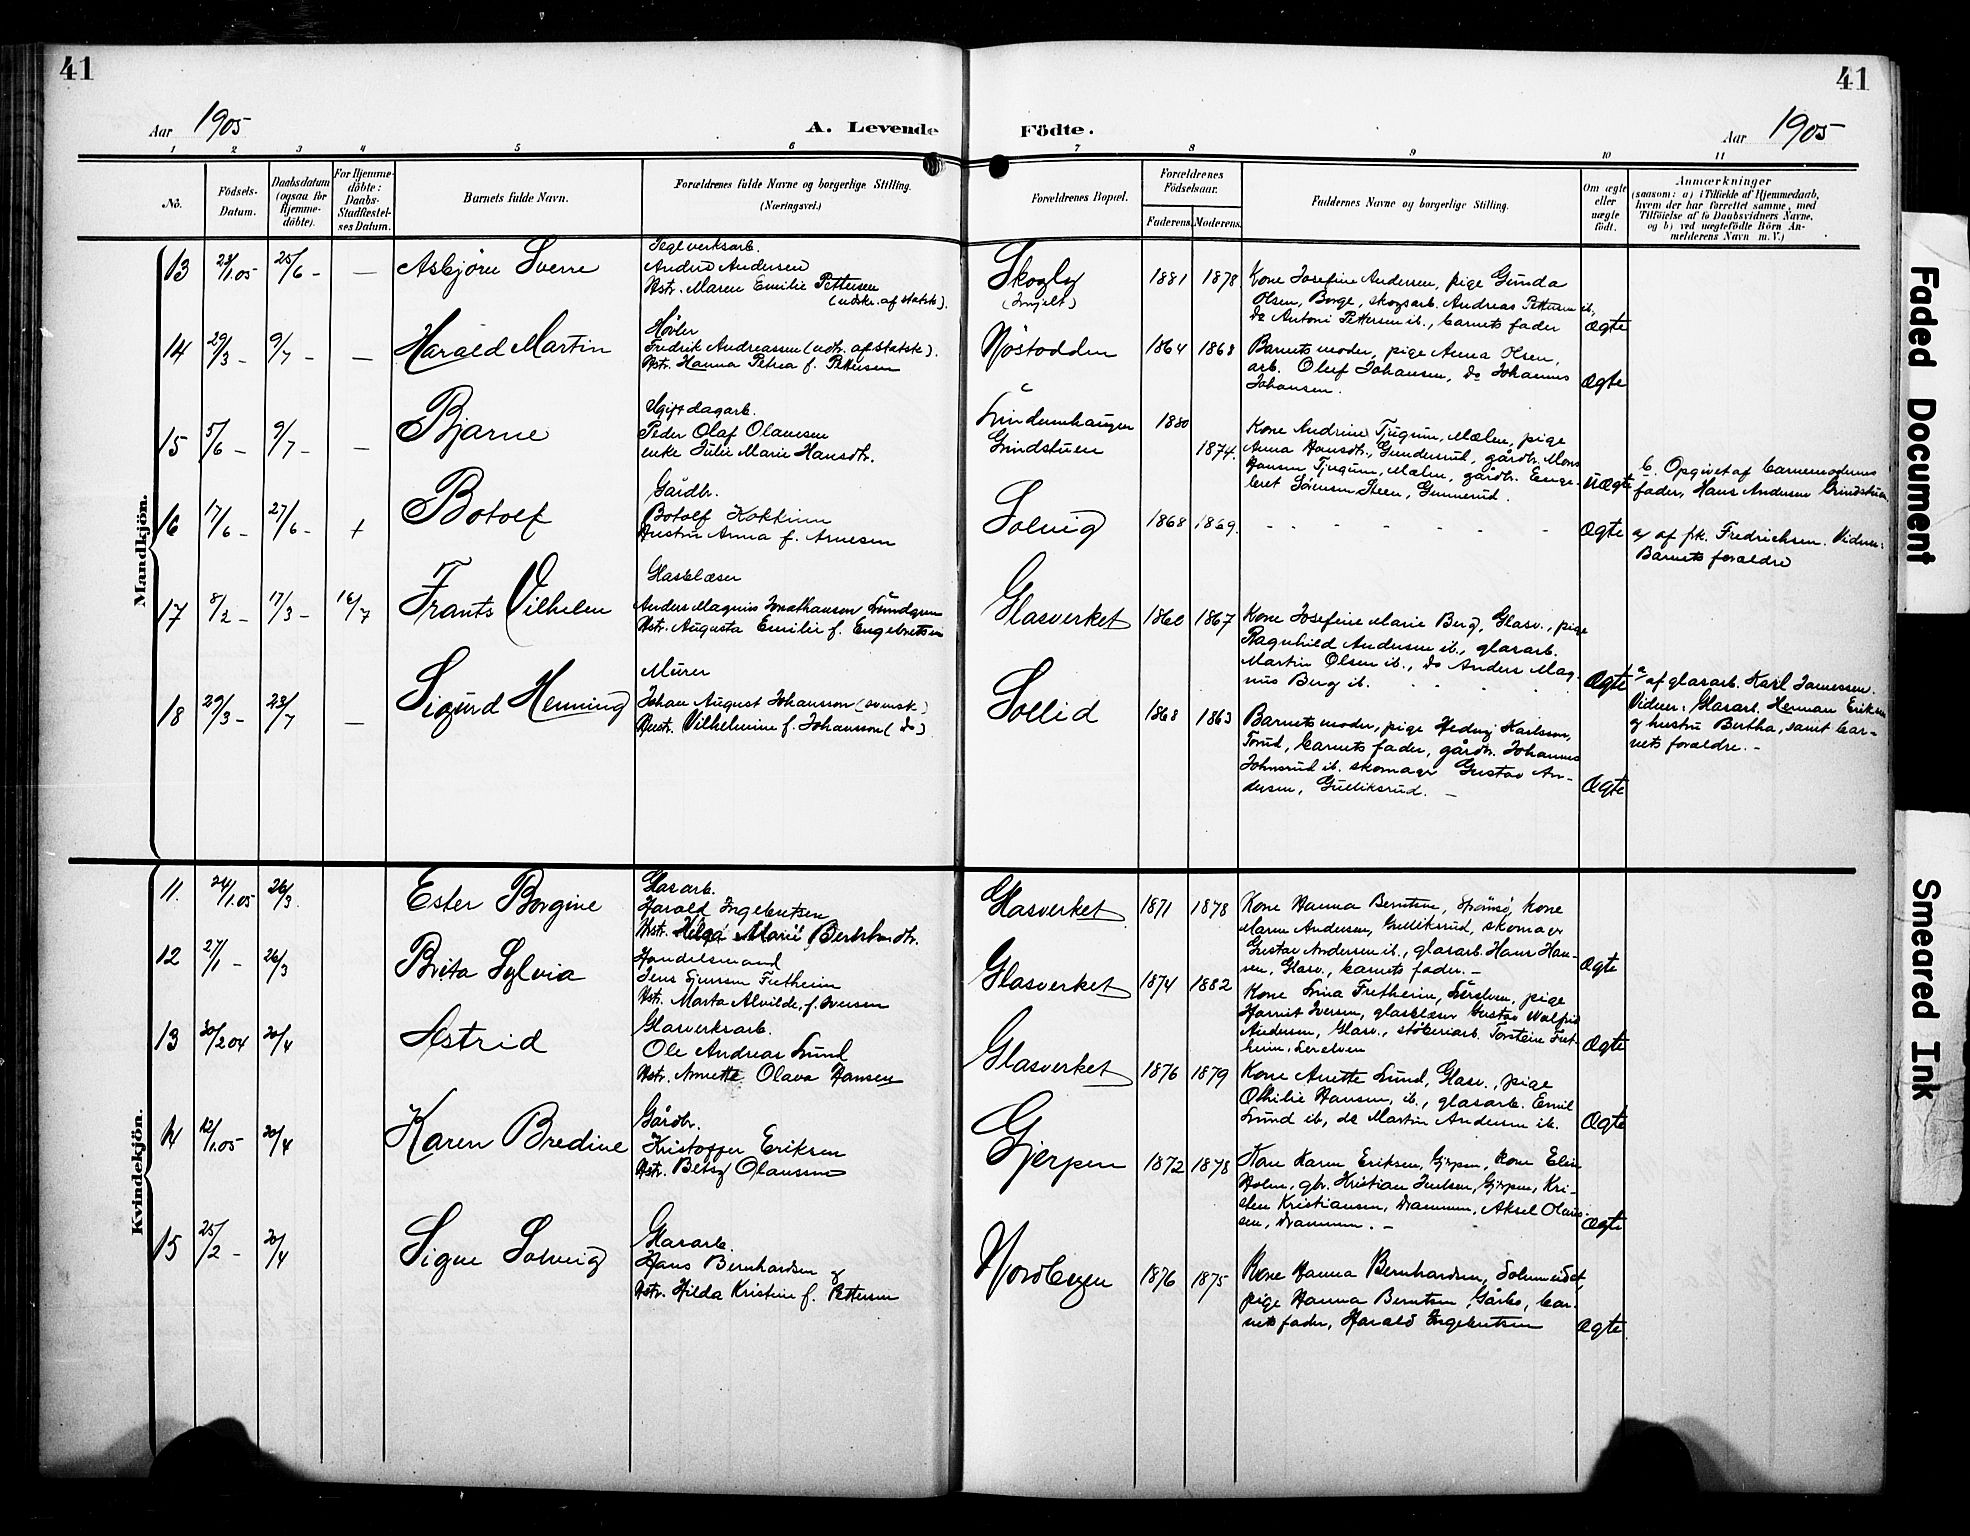 41
41
Aar 1905
A. Levende
Födte.
Aar 1905
1 2 3 4 5 6 7 8 9 10 11
No.
Födsels-
Datum.
Daabsdatum
(ogsaa for
Hjemme-
döbte).
For Hjemme-
döbte:
Daabs-
Stadfæstel-
ses Datum.
Barnets fulde Navn.
Forældrenes fulde Navne og borgerlige Stilling.
(Næringsvei.)
Forældrenes Bopæl.
Forældrenes
Födselsaar.
Faderens Moderens
Faddernes Navne og borgerlige Stilling.
Om ægte
eller
uægte
födt.
Anmærkninger
(saasom: a) i Tilfælde af Hjemmedaab,
hvem der har forrettet samme, med
Tilföielse af to Daabsvidners Navne,
og b) ved uægtefödte Börn An-
melderens Navn m. V.)
Mandkjön.
13 23/1 05 25/6 - — Asbjørn Sverre
Teglverksarb.
Anders Andersen
Hstr. Maren Emilie Pettersen
(udskr. af statsk).
Skogly
1881 1878
Kone Josefine Andersen, pige Gunda
Olsen, Borge, skogsarb. Andreas Pettersen ib,
do Antoni Pettersen ib., barnets fader
ægte
14 29/3 - 9/7 - — Harald Martin
Høvler
Fredrik Andreassen (udtr. af statsk).
Hstr. Hanna Petrea f. Pettersen
Nøstodden
1864 1868
Barnets moder, pige Anna Olsen,
arb. Oluf Johansen, do Johannes
Johansen.
ægte
15 5/6 - 9/7 - — Bjarne
Ugift dagarb.
Peder Olaf Olaussen
enke Julie Marie Hansdtr.
Lindemhaugen
Grindstuen
1880
1874.
Kone Andrine Tjugum, Mælen, pige
Anna Hansdtr., Gunderud, gårdbr. Mons
Hansen Tjugum, Mælen, gårdbr. Enge-
bret Sørensen Steen, Gunnerud.
uægte
b. Opgivet af barnemoderens
fader, Hans Andersen Grindstuen
16 17/6 - 27/6 - + Botolf
Gårdbr.
Botolf Kokkim
Hustru Anna f. Arnesen
Solvig
1868 1869.
ægte
a) af pk. Fredrichsen. Vidner:
Barnets forældre
17 8/2 - 17/3 - 16/7 Frants Vilhelm
Glasblæser
Anders Magnus Jonathanson Lundgren
Hstr. Augusta Emilie f. Engebretsen
Glasverket
1860 1867
Kone Josefine Marie Berg, Glasv., pige
Ragnhild Andersen ib., glasarb.
Martin Olsen ib., do Anders Mag-
nus Berg ib.
ægte
a/ af glasarb. Karl Jamessen.
Vidner: Glasarb. Herman Eriksen
og hustru Bertha, samt bar-
nets forældre. -
18 29/3 - 23/7 — Sigurd Henning
Murer
Johan August Johansson (svensk)
Hustr. Vilhelmine f. Johansson (do)
Sollid
1868 1863
Barnets moder, pige Hedvig Karlsson,
Torud, barnets fader, gårdbr. Johannes
Johnsrud ib. skomager Gustav An-
dersen, Gulliksrud. -
ægte
Kvindekjön.
11. 24/1 05 26/3. Ester Borgine
Glasarb.
Harald Ingebretsen
Hstr. Helga Marie Berhardtr.
Glasverket
1871 1878
Kone Hanna Berntsen, Strømsø, kone
Maren Andersen, Gulliksrud, skomager
Gustav Andersen ib., glasarb. Hans Han-
sen, Glasv., barnets fader. -
ægte
12 27/1 - 26/3 Brita Sylvia
Handelsmand
Jens Gjursen Fretheim
Hstr. Marta Alvilde, f. Iversen
Glasverket
1874 1882
Kone Lina Fretheim, Lerelven, pige
Harriet Iversen, glasblæser Gustav Walfrid
Andersen, Glasv., støberiarb. Torstein Fret-
heim, Lerelven
ægte
13 30/2 04 30/4 Astrid
Glasverksarb.
Ole Andreas Lund
Hstr. Annette Olava Hansen
Glasverket
1876 1879
Kone Anette Lund, Glasv., pige
Othilie Hansen, ib., glasarb. Emil
Lund ib, do Martin Andersen ib.
ægte
14 12/1 05 30/4 Karen Bredine
Gårdbr.
Kristoffer Eriksen
Hstr. Betsy Olaussen
Gjerpen
1872 1878
Kone Karen Eriksen, Gjerpen, kone Elin
Holm, gbr. Kristian Juelsen, Gjerpen, Kri-
sten Kristiansen, Drammen, Aksel Olaus-
sen, Drammen. -
ægte
15 25/2 - 30/4 Signe Solveig
Glasarb.
Hans Bernhardsen og
Hstr. Hilda Kristine f. Pettersen
Nordbygen
1876 1875
Kone Hanna Bernhardsen,
pige Hanna Berntsen, bar-
nets fader, Harald Ingebretsen
ægte
Faded Document
Smeared Ink